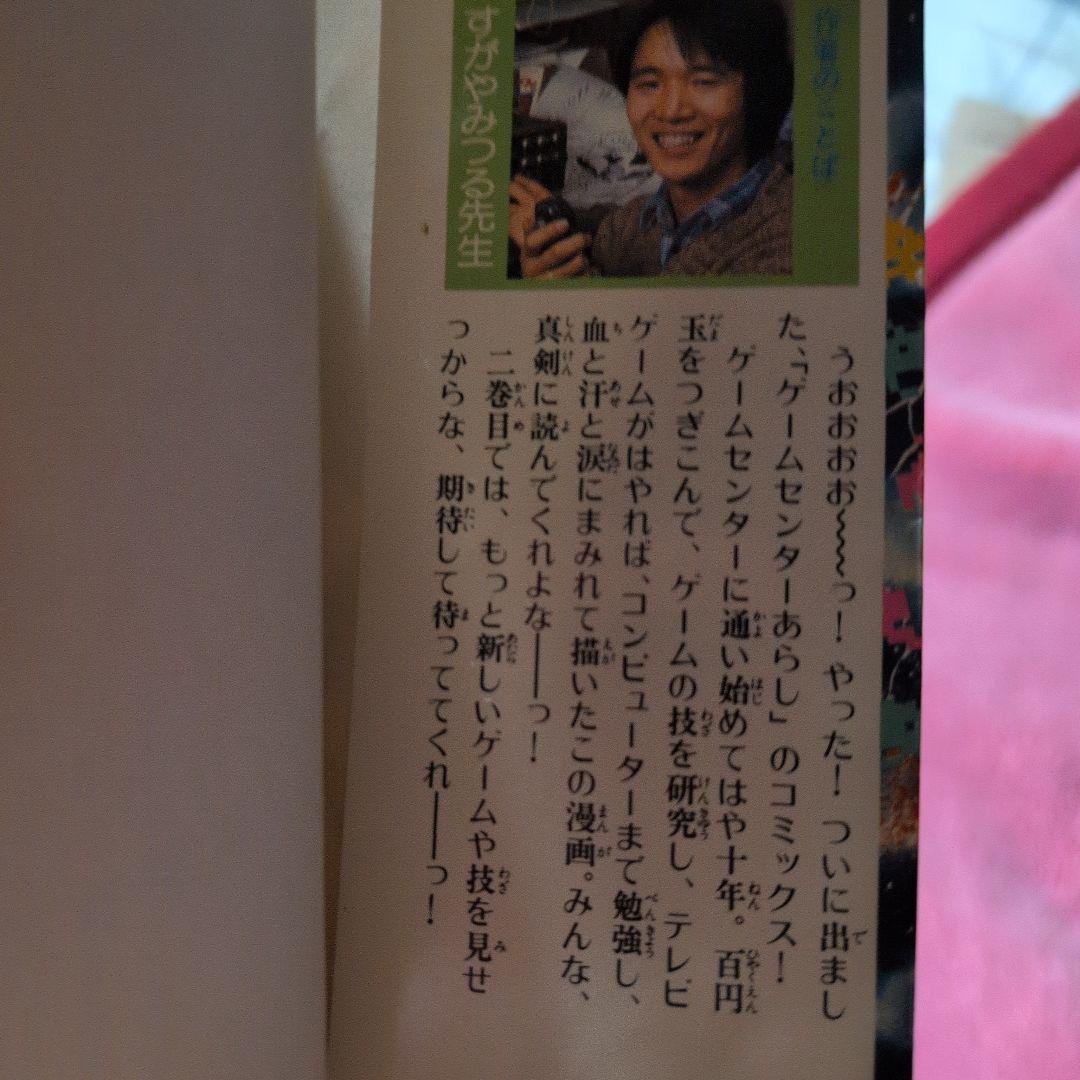 作者のことば
すがやみつる先生
うおおおお〜〜〜っ！やった！ついに出まし
た、「ゲームセンターあらし」のコミックス！
ゲームセンターに通い始めてはや十年。百円
玉をつぎこんで、ゲームの技を研究し、テレビ
ゲームがはやれば、コンピューターまで勉強し、
血と汗と涙にまみれて描いたこの漫画。みんな、
真剣に読んでくれよな――っ！
二巻目では、もっと新しいゲームや技を見せ
っからな、期待して待っててくれ――っ！